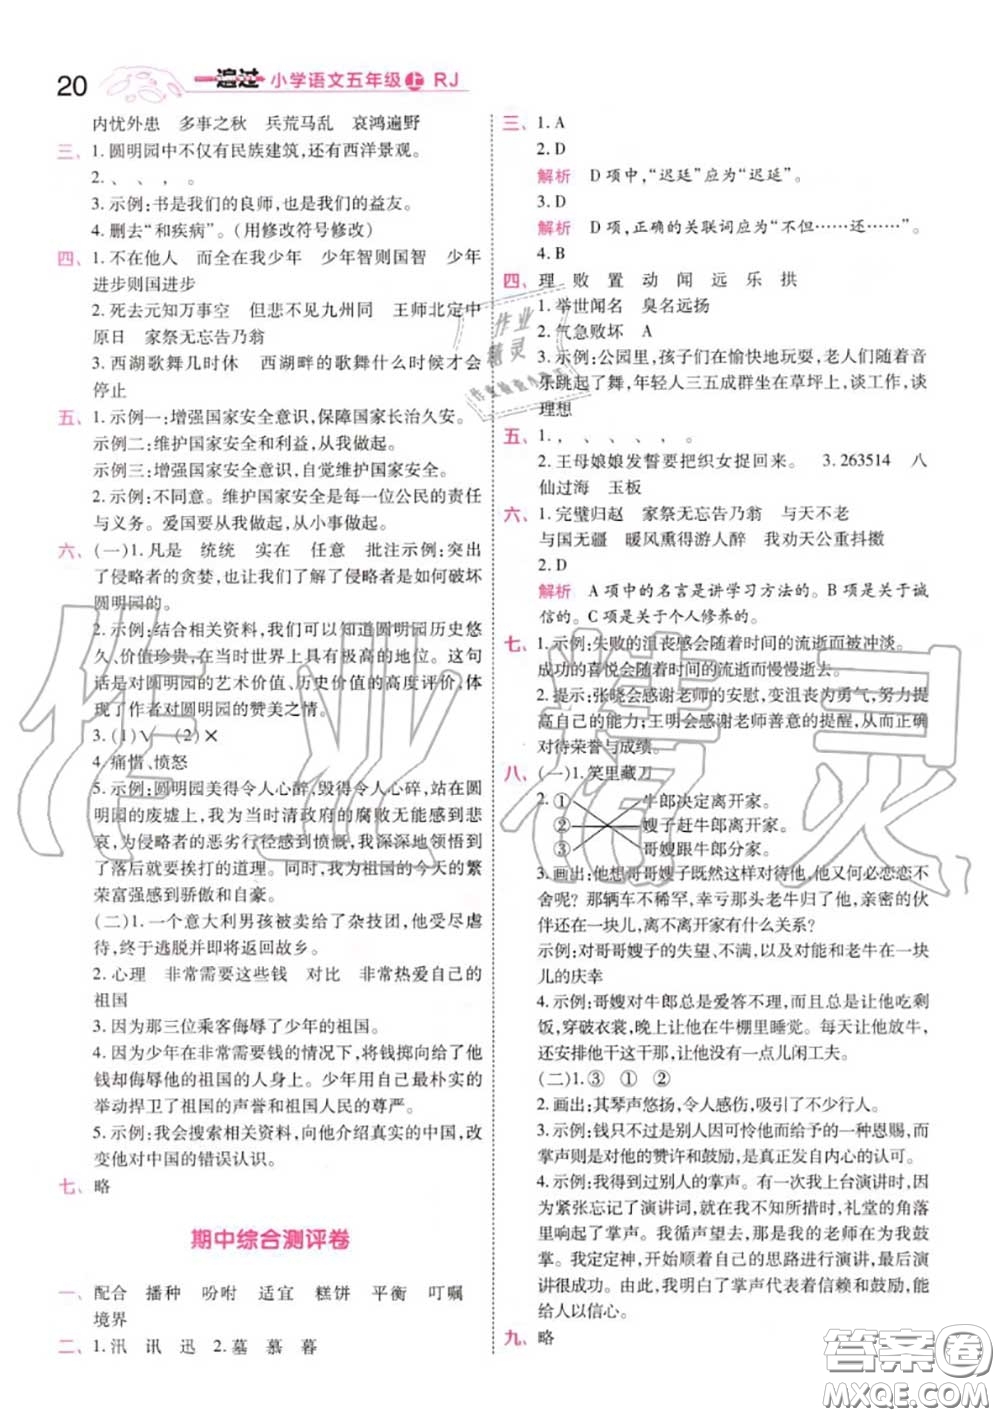 20 一遍过 小学语文五年级上 RJ
内忧外患 多事之秋 兵荒马乱 哀鸿遍野
三、1. 圆明园中不仅有民族建筑,还有西洋景观。
2. 、 、 , 。
3. 示例:书是我们的良师,也是我们的益友。
4. 删去“和疾病”。(用修改符号修改)
四、1. 不在他人 而全在我少年 少年智则国智 少年
进步则国进步
2. 死去元知万事空 但悲不见九州同 王师北定中
原日 家祭无忘告乃翁
3. 西湖歌舞几时休 西湖畔的歌舞什么时候才会
停止
五、1. 示例一:增强国家安全意识,保障国家长治久安。
示例二:维护国家安全和利益,从我做起。
示例三:增强国家安全意识,自觉维护国家安全。
2. 示例:不同意。维护国家安全是每一位公民的责任
与义务。爱国要从我做起,从小事做起。
六、(一)1. 凡是 统统 实在 任意 批注示例:突出
了侵略者的贪婪,也让我们了解了侵略者是如何破坏
圆明园的。
2. 示例:结合相关资料,我们可以知道圆明园历史悠
久、价值珍贵,在当时世界上具有极高的地位。这句
话是对圆明园的艺术价值、历史价值的高度评价,体
现了作者对圆明园的赞美之情。
3. (1)√ (2)×
4. 痛惜、愤怒
5. 示例:圆明园美得令人心醉,毁得令人心碎,站在圆
明园的废墟上,我为当时清政府的腐败无能感到悲
哀,为侵略者的恶劣行径感到愤慨,我深深地领悟到
了落后就要挨打的道理。同时,我为祖国的今天的繁
荣富强感到骄傲和自豪。
(二)1. 一个意大利男孩被卖给了杂技团,他受尽虐
待,终于逃脱并即将返回故乡。
2. 心理 非常需要这些钱 对比 非常热爱自己的
祖国
3. 因为那三位乘客侮辱了少年的祖国。
4. 因为少年在非常需要钱的情况下,将钱掷向给了他
钱却侮辱他的祖国的人身上。少年用自己最朴实的
举动捍卫了祖国的声誉和祖国人民的尊严。
5. 示例:我会搜索相关资料,向他介绍真实的中国,改
变他对中国的错误认识。
七、略
期中综合测评卷
一、配合 播种 吩咐 适宜 糕饼 平衡 叮嘱
境界
二、1. 汛 讯 迅 2. 墓 慕 暮
三、1. A
2. D
解析 D项中,“迟廷”应为“迟延”。
3. D
解析 D项,正确的关联词应为“不但……还……”。
4. B
四、理 败 置 动 闻 远 乐 拱
1. 举世闻名 臭名远扬
2. 气急败坏 A
3. 示例:公园里,孩子们在愉快地玩耍,老人们随着音
乐跳起了舞,年轻人三五成群坐在草坪上,谈工作,谈
理想
五、1. , 、 、 , 。
2. 王母娘娘发誓要把织女捉回来。 3. 263514 八
仙过海 玉板
六、1. 完璧归赵 家祭无忘告乃翁 与天不老
与国无疆 暖风熏得游人醉 我劝天公重抖擞
2. D
解析 A项中的名言是讲学习方法的。B项是关于诚
信的。C项是关于个人修养的。
七、1. 示例:失败的沮丧感会随着时间的流逝而被冲淡。
成功的喜悦会随着时间的流逝而慢慢逝去。
2. 提示:张晓会感谢老师的安慰,变沮丧为勇气,努力提
高自己的能力;王明会感谢老师善意的提醒,从而正确
对待荣誉与成绩。
八、(一)1. 笑里藏刀
2. ① 牛郎决定离开家。
② 嫂子赶牛郎离开家。
③ 哥嫂跟牛郎分家。
3. 画出:他想哥哥嫂子既然这样对待他,他又何必恋恋不
舍呢? 那辆车不稀罕,幸亏那头老牛归了他,亲密的伙
伴还在一块儿,离不离开家有什么关系?
示例:对哥哥嫂子的失望、不满,以及对能和老牛在一块
儿的庆幸
4. 示例:哥嫂对牛郎总是爱答不理,而且总是让他吃剩
饭,穿破衣裳,晚上让他在牛棚里睡觉。每天让他放牛,
还安排他干这干那,让他没有一点儿闲工夫。
(二)1. ③ ① ②
2. 画出:其琴声悠扬,令人感伤,吸引了不少行人。
3. 示例:钱只不过是别人因可怜他而给予的一种恩赐,而
掌声则是对他的赞许和鼓励,是真正发自内心的认可。
4. 示例:我得到过别人的掌声。有一次我上台演讲时,因
为紧张忘记了演讲词,就在我不知所措时,礼堂的角落
里响起了掌声。我循声望去,是我的老师在为我鼓
掌。我定定神,开始按自己的思路进行演讲,最后演
讲很成功。由此,我明白了掌声代表着信赖和鼓励,能
给人以信心。
九、略
作业精灵
答案卷
MXQE.COM